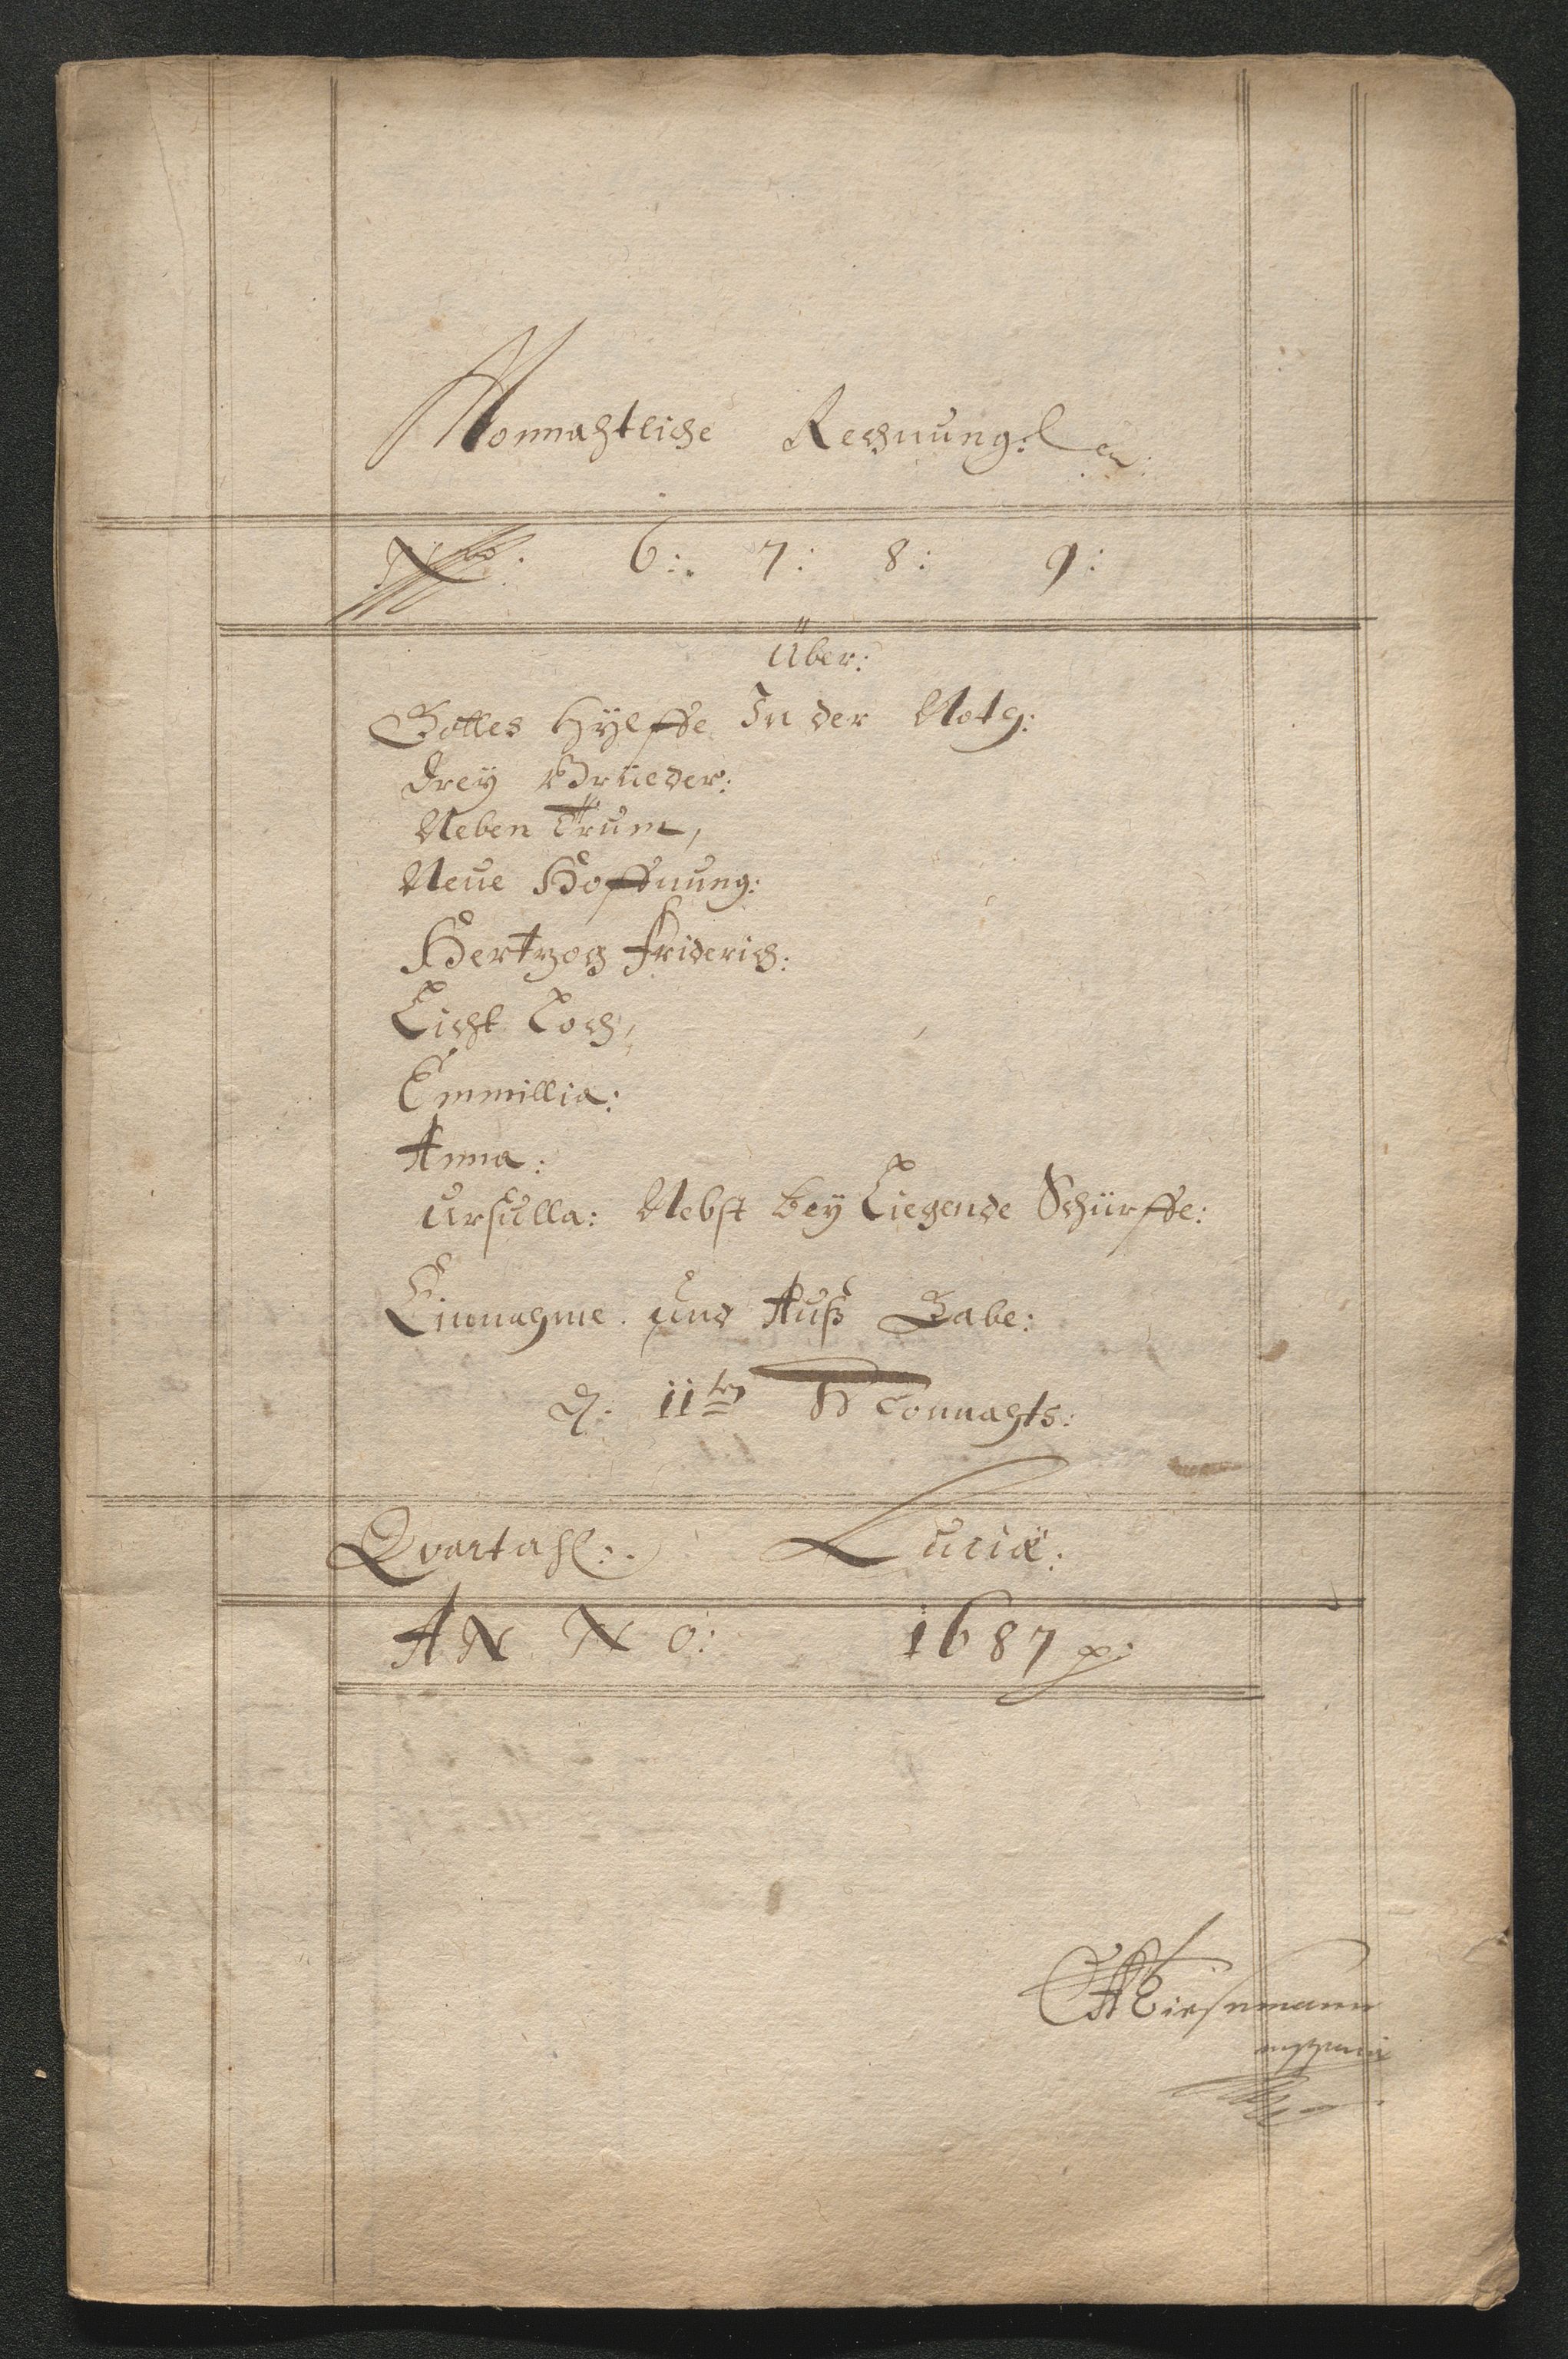 Monnahtliche Rechnung:
No. 6: 7: 8: 9:
Über:
Gottes Hÿlffe In der Noth:
Dreÿ Brüeder:
Neben Trum,
Neue Hoffnung:
Hertzog Friderich:
Licht Loch,
Emmillia:
Anna:
Ursulla: Nebst beÿ Liegende Schürffe:
Einnahme. und Auß Gabe:
d. 11ten Monnahts:
Qvartahl: Luciæ:
ANNO: 1687